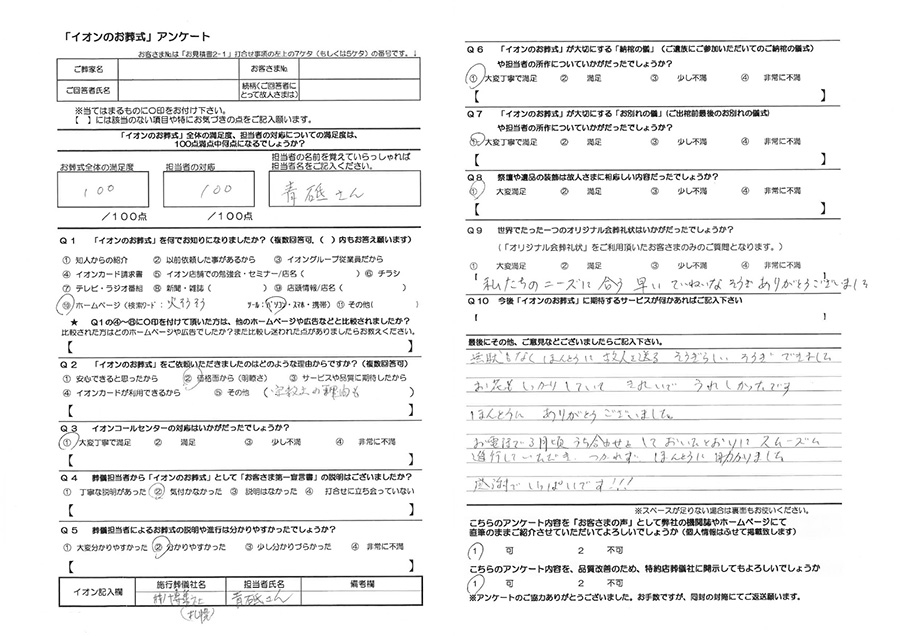 「イオンのお葬式」アンケート
お客さま№は「お見積書2-1」打合せ事項の左上の7ケタ（もしくは5ケタ）の番号です。↓
ご葬家名
お客さま№
ご回答者氏名
続柄（ご回答者に
とって故人さまは）
※当てはまるものに○印をお付け下さい。
【　】には該当のない項目や特にお気づきの点をご記入願います。
「イオンのお葬式」全体の満足度、担当者の対応についての満足度は、
100点満点中何点になるでしょうか？
お葬式全体の満足度
担当者の対応
担当者の名前を覚えていらっしゃれば
担当者名をご記入ください。
100
100
青砥さん
／100点
／100点
Q１　「イオンのお葬式」を何でお知りになりましたか？（複数回答可、（　）内もお答え願います）
① 知人からの紹介　② 以前依頼した事があるから　③ イオングループ従業員だから
④ イオンカード請求書　⑤ イオン店舗での勉強会・セミナー/店名（　）⑥ チラシ
⑦ テレビ・ラジオ番組　⑧ 新聞・雑誌（　）⑨ 店頭情報/店名（　）
⑩ ホームページ（検索ワード：火そうそう　ツール：パソコン・スマホ・携帯）⑪ その他（　）
★　Q１の④～⑪に○印を付けて頂いた方は、他のホームページや広告などと比較されましたか？
比較された方はどのホームページや広告でしたか？また比較し迷われた点がありましたらお教えください。
【　】
Q２　「イオンのお葬式」をご依頼いただきましたのはどのような理由からですか？（複数回答可）
① 安心できると思ったから　② 価格面から（明瞭さ）　③ サービスや品質に期待したから
④ イオンカードが利用できるから　⑤ その他　（宗教上の理由も）
【　】
Q３　イオンコールセンターの対応はいかがだったでしょうか？
① 大変丁寧で満足　② 満足　③ 少し不満　④ 非常に不満
【　】
Q４　葬儀担当者から「イオンのお葬式」として「お客さま第一宣言書」の説明はございましたか？
① 丁寧な説明があった　② 気付かなかった　③ 説明はなかった　④ 打合せに立ち会っていない
【　】
Q５　葬儀担当者によるお葬式の説明や進行は分かりやすかったでしょうか？
① 大変分かりやすかった　② 分かりやすかった　③ 少し分かりづらかった　④ 非常に不満
【　】
イオン記入欄
施行葬儀社名
担当者氏名
備考欄
青砥さん
(札幌)
Q６　「イオンのお葬式」が大切にする「納棺の儀」（ご遺族にご参加いただいてのご納棺の儀式）
や担当者の所作についていかがだったでしょうか？
① 大変丁寧で満足　② 満足　③ 少し不満　④ 非常に不満
【　】
Q７　「イオンのお葬式」が大切する「お別れの儀」（ご出棺前最後のお別れの儀式）
や担当者の所作についていかがだったでしょうか？
① 大変丁寧で満足　② 満足　③ 少し不満　④ 非常に不満
【　】
Q８　祭壇や遺品の装飾は故人さまに相応しい内容だったでしょうか？
① 大変満足　② 満足　③ 少し不満　④ 非常に不満
【　】
Q９　世界でたった一つのオリジナル会葬礼状はいかがだったでしょうか？
（「オリジナル会葬礼状」をご利用頂いたお客さまのみのご質問となります。）
① 大変満足　② 満足　③ 少し不満　④ 非常に不満
私たちのニーズに合う 早い ていねいな そうぎ ありがとうございました
Q10　今後「イオンのお葬式」に期待するサービスが何かあればご記入下さい
最後にその他、ご意見などございましたらご記入下さい。
無駄もなく ほんとうに 故人を送る そうぎらしい そうぎ できました
お花もしっかりしていて きれいで うれしかったです
ほんとうに ありがとうございました。
お電話で3月頃 うち合わせをしておいたとおりに スムーズに
進行していただき、つかれず ほんとうに 助かりました
感謝でいっぱいです!!!
※スペースが足りない場合は裏面もお使いください。
こちらのアンケート内容を「お客さまの声」として弊社の機関誌やホームページにて
直筆のままご紹介させていただいてよろしいでしょうか（個人情報はふせて掲載致します）
1　可　2　不可
こちらのアンケート内容を、品質改善のため、特約店葬儀社に開示してもよろしいでしょうか
1　可　2　不可
※アンケートのご協力ありがとうございました。お手数ですが、同封の封筒にてご返送願います。